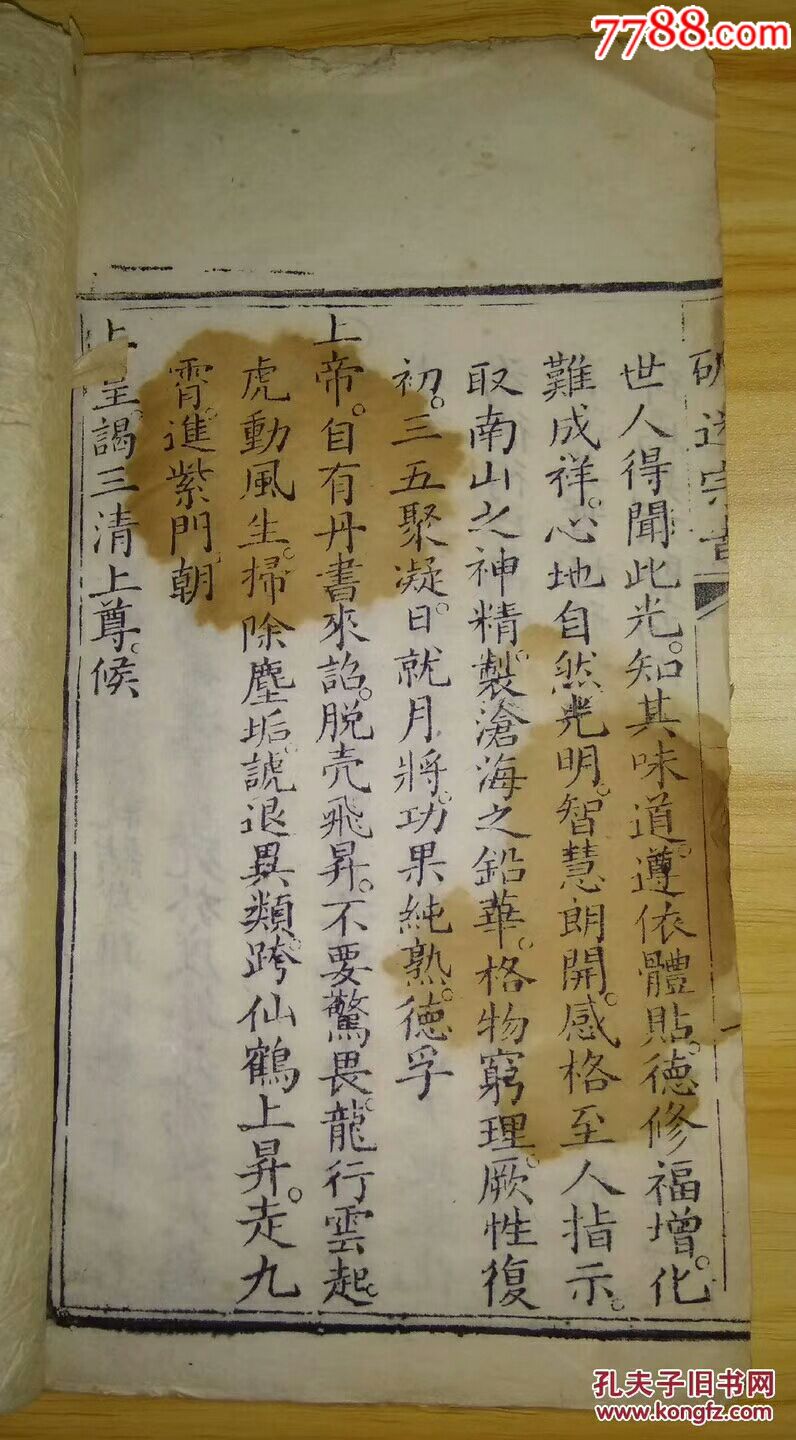 7788.com
世人得聞此光。知其味道。遵依體貼。德修福增。化
難成祥。心地自然光明。智慧朗開。感格至人指示。
取南山之神精。製滄海之鉛華。格物窮理。厥性復
初。三五聚凝。日就月將。功果純熟。德孚
上帝。自有丹書來詔。脱壳飛昇。不要驚畏。龍行雲起。
虎動風生。掃除塵垢。諕退異類。跨仙鶴上昇。走九
霄。進紫門。朝
謁三清上尊。候
孔夫子旧书网
www.kongfz.com